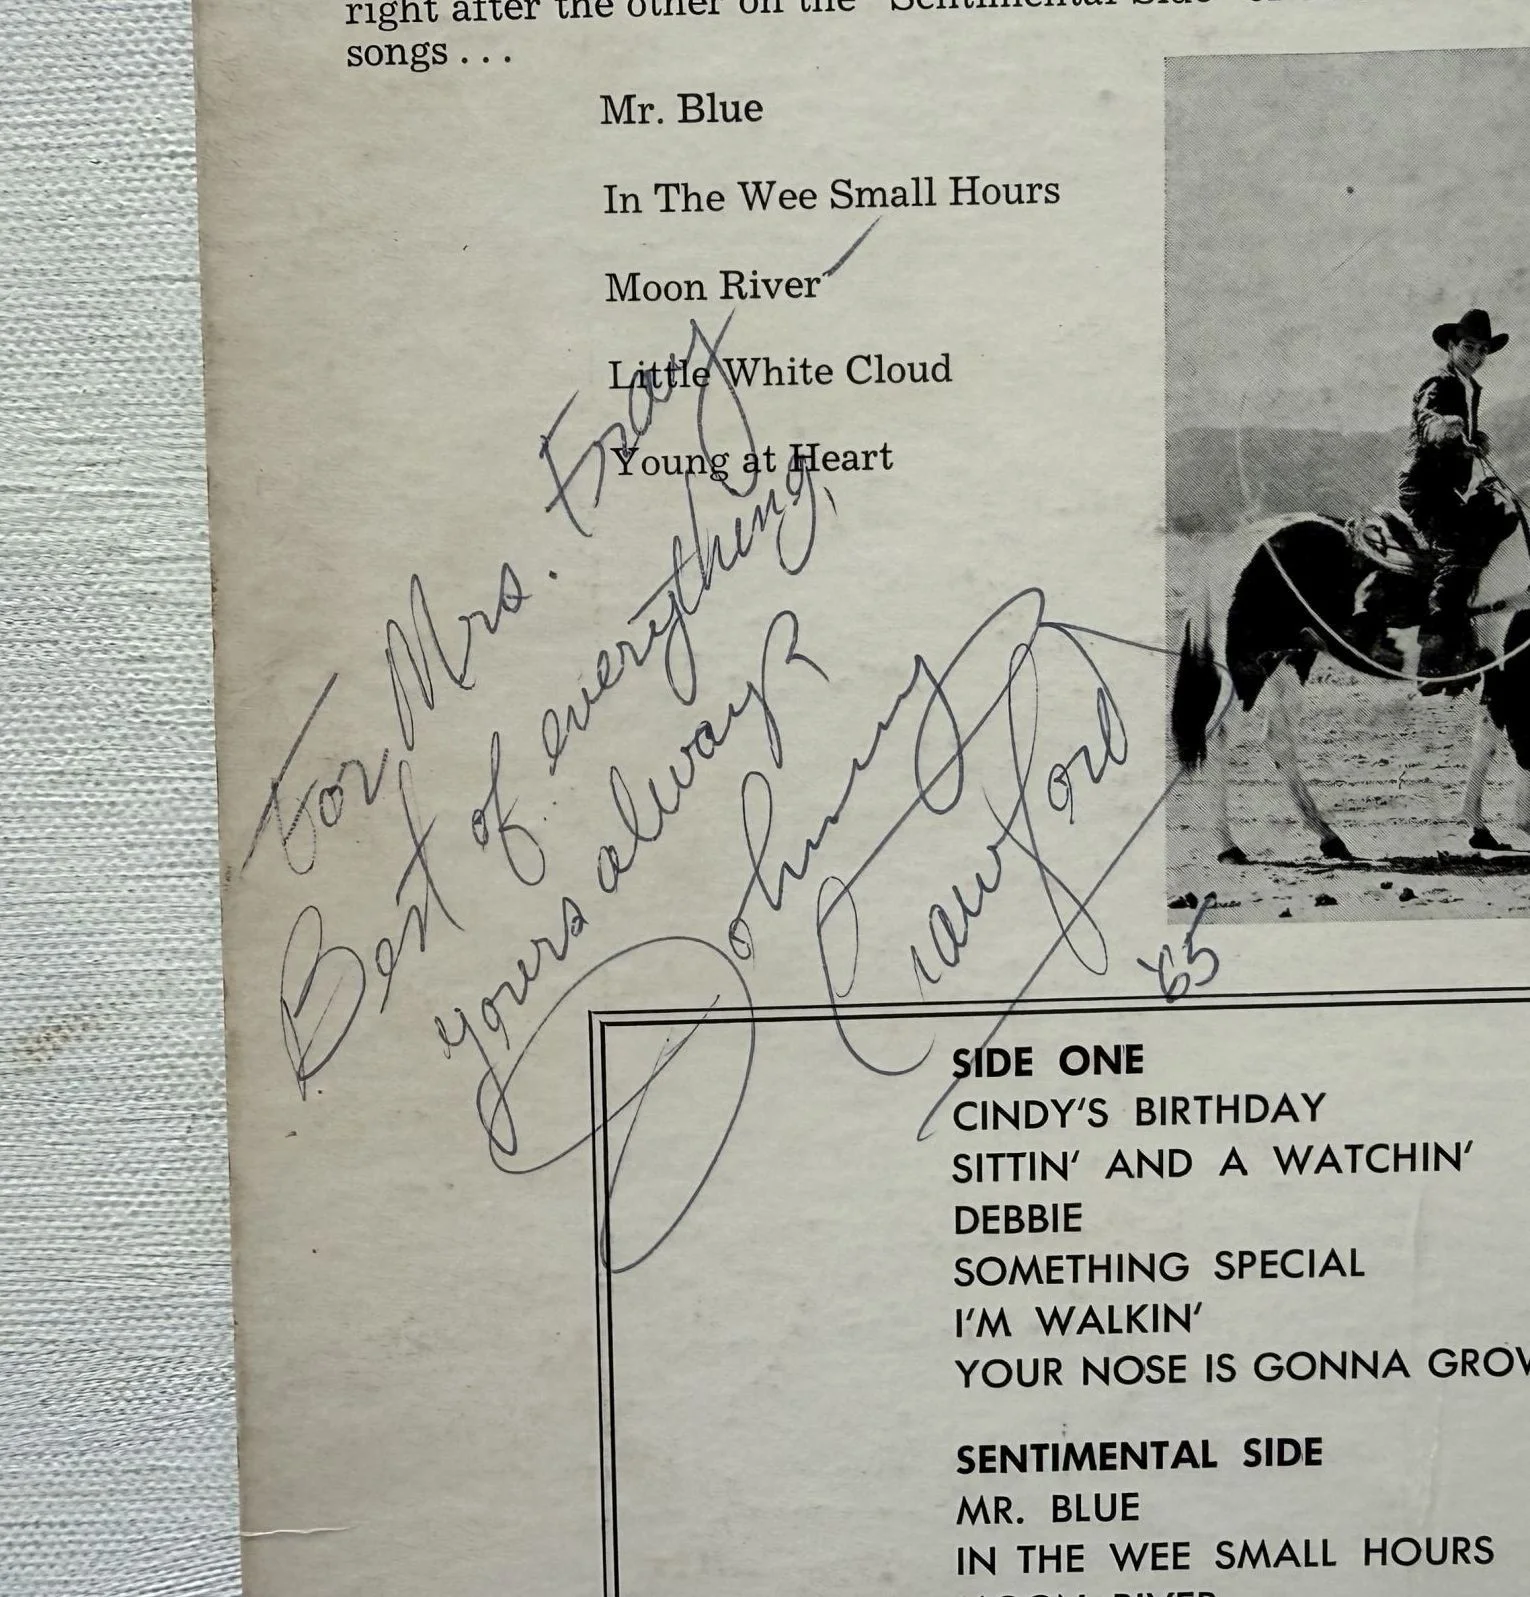 right after the other on the "Sentimental Side"
songs . . .
Mr. Blue
In The Wee Small Hours
Moon River
Little White Cloud
Young at Heart
For Mrs.
Best of everything,
yours always
Johnny
Crawford
'65
SIDE ONE
CINDY'S BIRTHDAY
SITTIN' AND A WATCHIN'
DEBBIE
SOMETHING SPECIAL
I'M WALKIN'
YOUR NOSE IS GONNA GROW
SENTIMENTAL SIDE
MR. BLUE
IN THE WEE SMALL HOURS
MOON RIVER